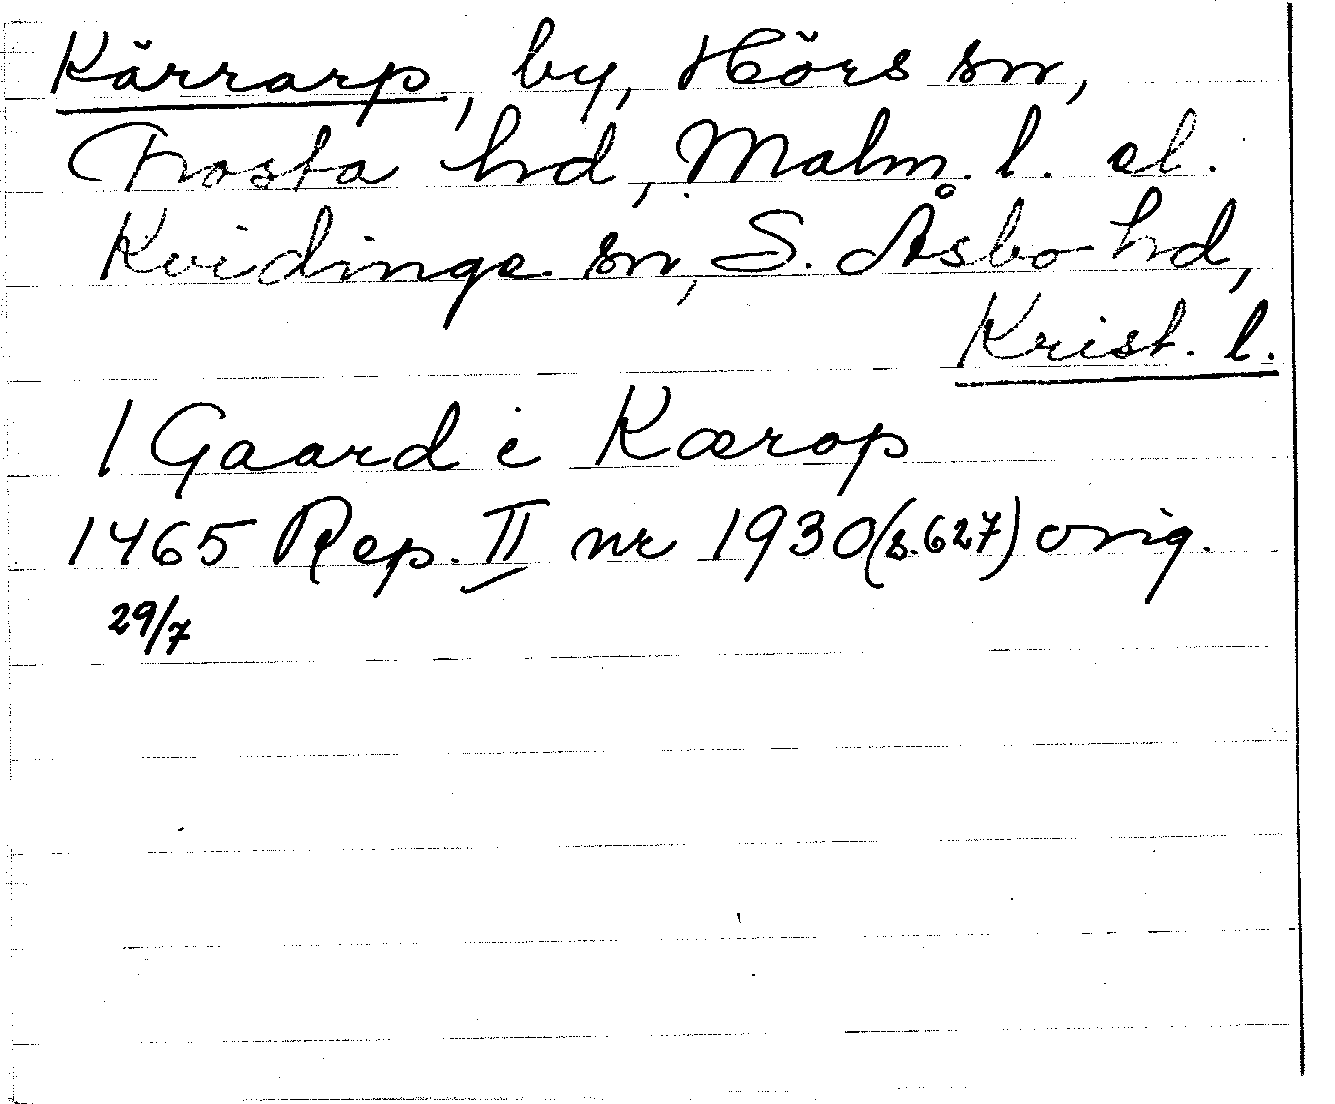 Kärrarp, by, Hörs sn,
Frosta hd, Malm. l. el.
Kvidinge sn, S. Åsbo hd,
Krist. l.
1 Gaard i Kærop
1465 Rep. II nr 1930 (s. 627) orig.
29/7